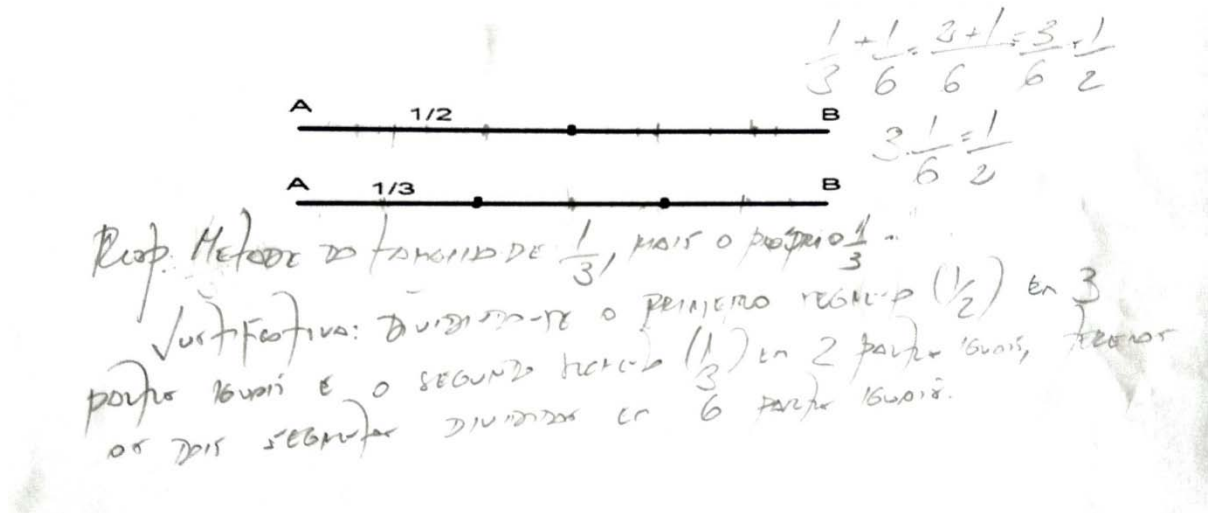 1/3 + 1/6 = 2+1/6 = 3/6 = 1/2
A 1/2 B
3 . 1/6 = 1/2
A 1/3 B
Resp. Metade do tamanho de 1/3, mais o próprio 1/3.
Justificativa: Dividindo-se o primeiro segmento (1/2) em 3
partes iguais e o segundo segmento (1/3) em 2 partes iguais, teremos
os dois segmentos divididos em 6 partes iguais.